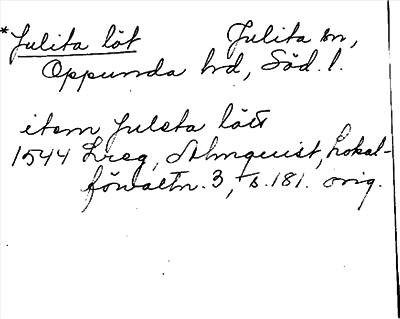 *Julita löt Julita sn,
Oppunda hd, Söd. l.
item Juleta lött
1544 Lreg, Almquist, Lokal-
förvaltn. 3, s. 181. orig.